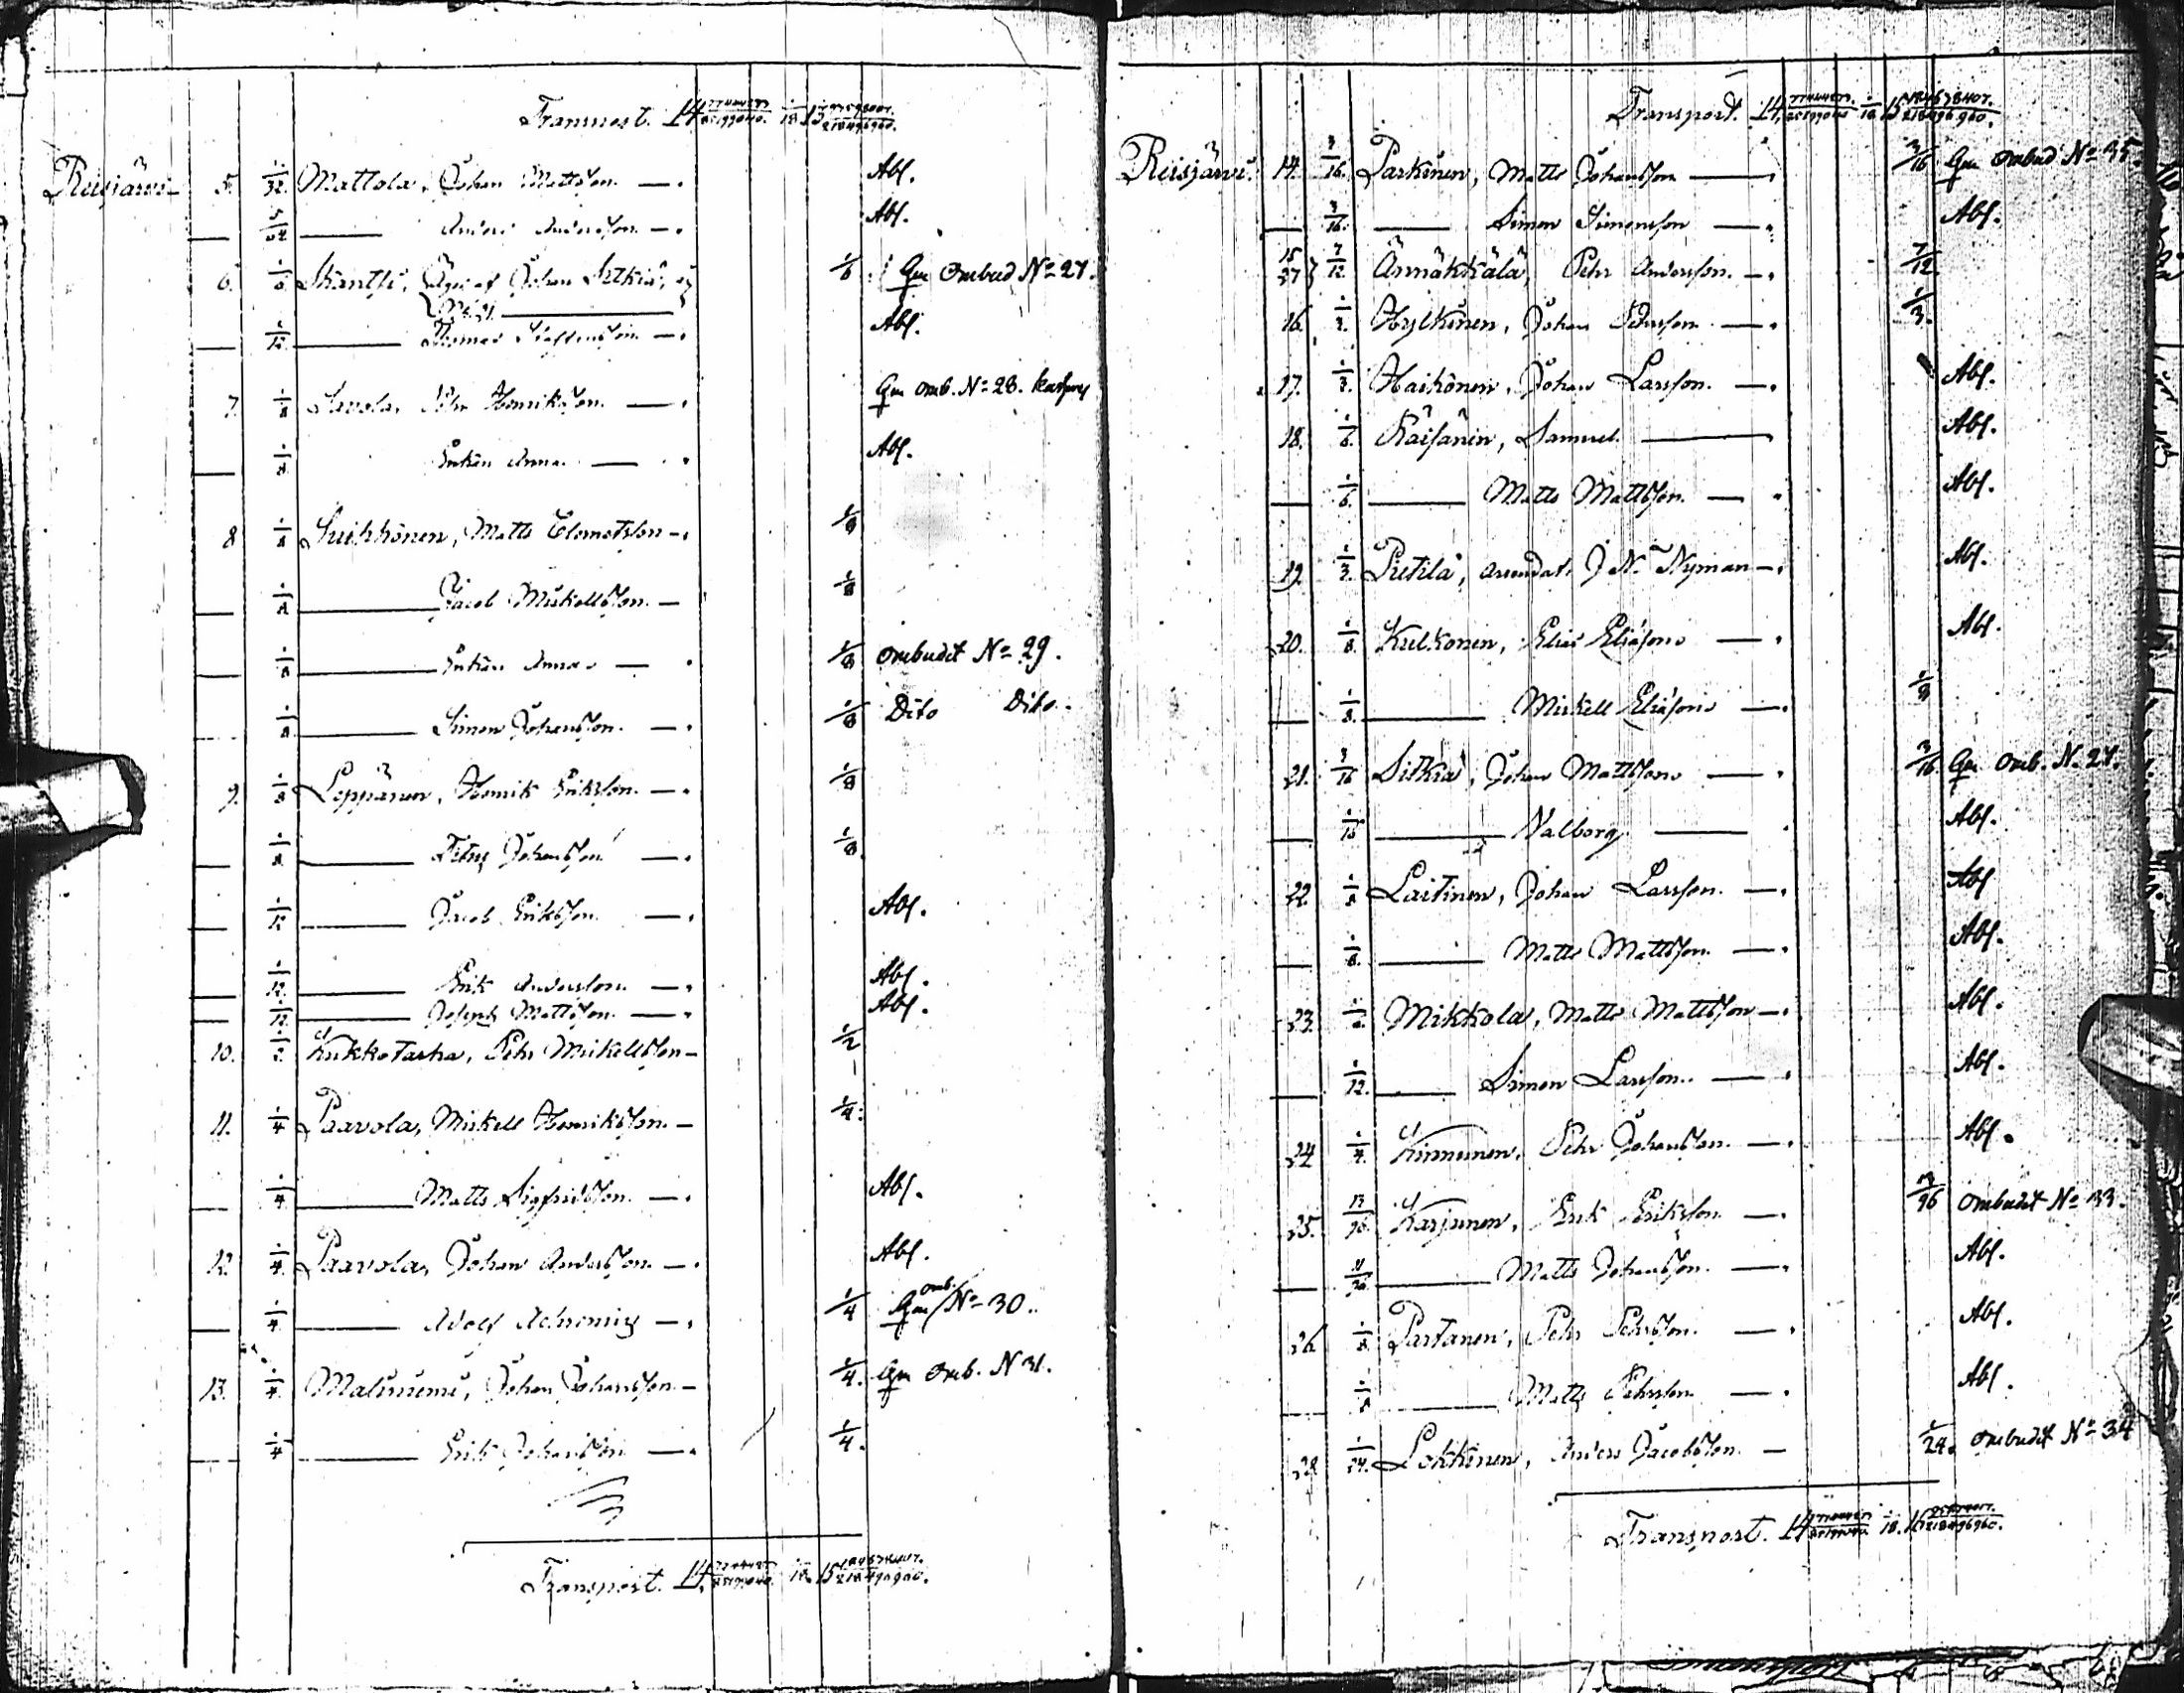 Transport. 14
Reisjärvi 5. 1/32. Mattola, Johan Mattsson — Abs.
— 5/24 — Anders Andersson — Abs.
6. 1/6 Johan Sitkiä, 1/6 Gm Ombud No 27.
— 1/12 — Thomas Staffansson — Abs.
7. 1/8 Savola, Pehr Henriksson — Gm omb. No 28.
— 1/8 Enkan Anna — Abs.
8 1/8 Suikkonen, Matts — 1/8
— 1/8 — Jacob Mickellsson — 1/8
— 1/8 — Enkan Anna — 1/8 ombudet No 29.
— 1/8 — Simon Johansson — 1/8 Dito Dito.
9. 1/8 Leppänen, Henrik Eriksson — 1/8
— 1/8 — Johansson — 1/8
— 1/12 — Jacob Eriksson — Abs.
— 1/12. — Erik Andersson — Abs.
— 1/12. — Joseph Mattsson — Abs.
10. 1/2. Kukkotarha, Pehr Mickellsson — 1/2
11. 1/4 Paavola, Mickell Henriksson — 1/4.
— 1/4 — Matts Sigfridsson — Abs.
12. 1/4. Paavola, Johan Andersson — Abs.
— 1/4. — Adolf — 1/4 Gm omb. No 30.
13. 1/4. Maliniemi, Johan Johansson — 1/4. Gm Omb. N 31.
— 1/4 — Erik Johansson — 1/4.
Transport. 14
Transport. 14
Reisjärvi. 14. 3/16. Parkinen, Matts Johansson — 3/16 Gm Ombud No 35.
— 3/16. — Simon Simonsson — Abs.
15 27 } 7/12 Ännäkkälä, Pehr Andersson — 7/12
16. 1/3. Hylkinen, Johan Pehrsson — 1/3.
17. 1/3. Haikonen, Johan Larsson — Abs.
18. 1/6. Räisänen, Samuel — Abs.
— 1/6. — Matts Mattsson — Abs.
19. 1/3. Pietilä, arrendat. J N. Nyman — Abs.
20. 1/8. Kulkonen, Elias Eliasson — Abs.
— 1/8. — Mickell Eliasson — 1/8
21. 3/16 Sitkiä, Johan Mattsson — 3/16. Gm Omb. N. 27.
— 1/16 — Valborg — Abs.
22. 1/8 Laitinen, Johan Larsson — Abs.
— 1/8. — Matts Mattsson — Abs.
23. Mikkola, Matts Mattsson — Abs.
— 1/12. — Simon Larsson — Abs.
24 1/4. Kinnunen, Pehr Johansson — Abs.
25. 13/96. Karjunen, Erik Eriksson — 13/96 Ombudet No 33.
— Matts Johansson — Abs.
26. 1/8. Partanen, Pehr Pehrsson — Abs.
— 1/8 — Matts Pehrsson — Abs.
28 1/24. Lokkinen, Anders Jacobsson — 1/24. Ombudet No 34
Transport. 14